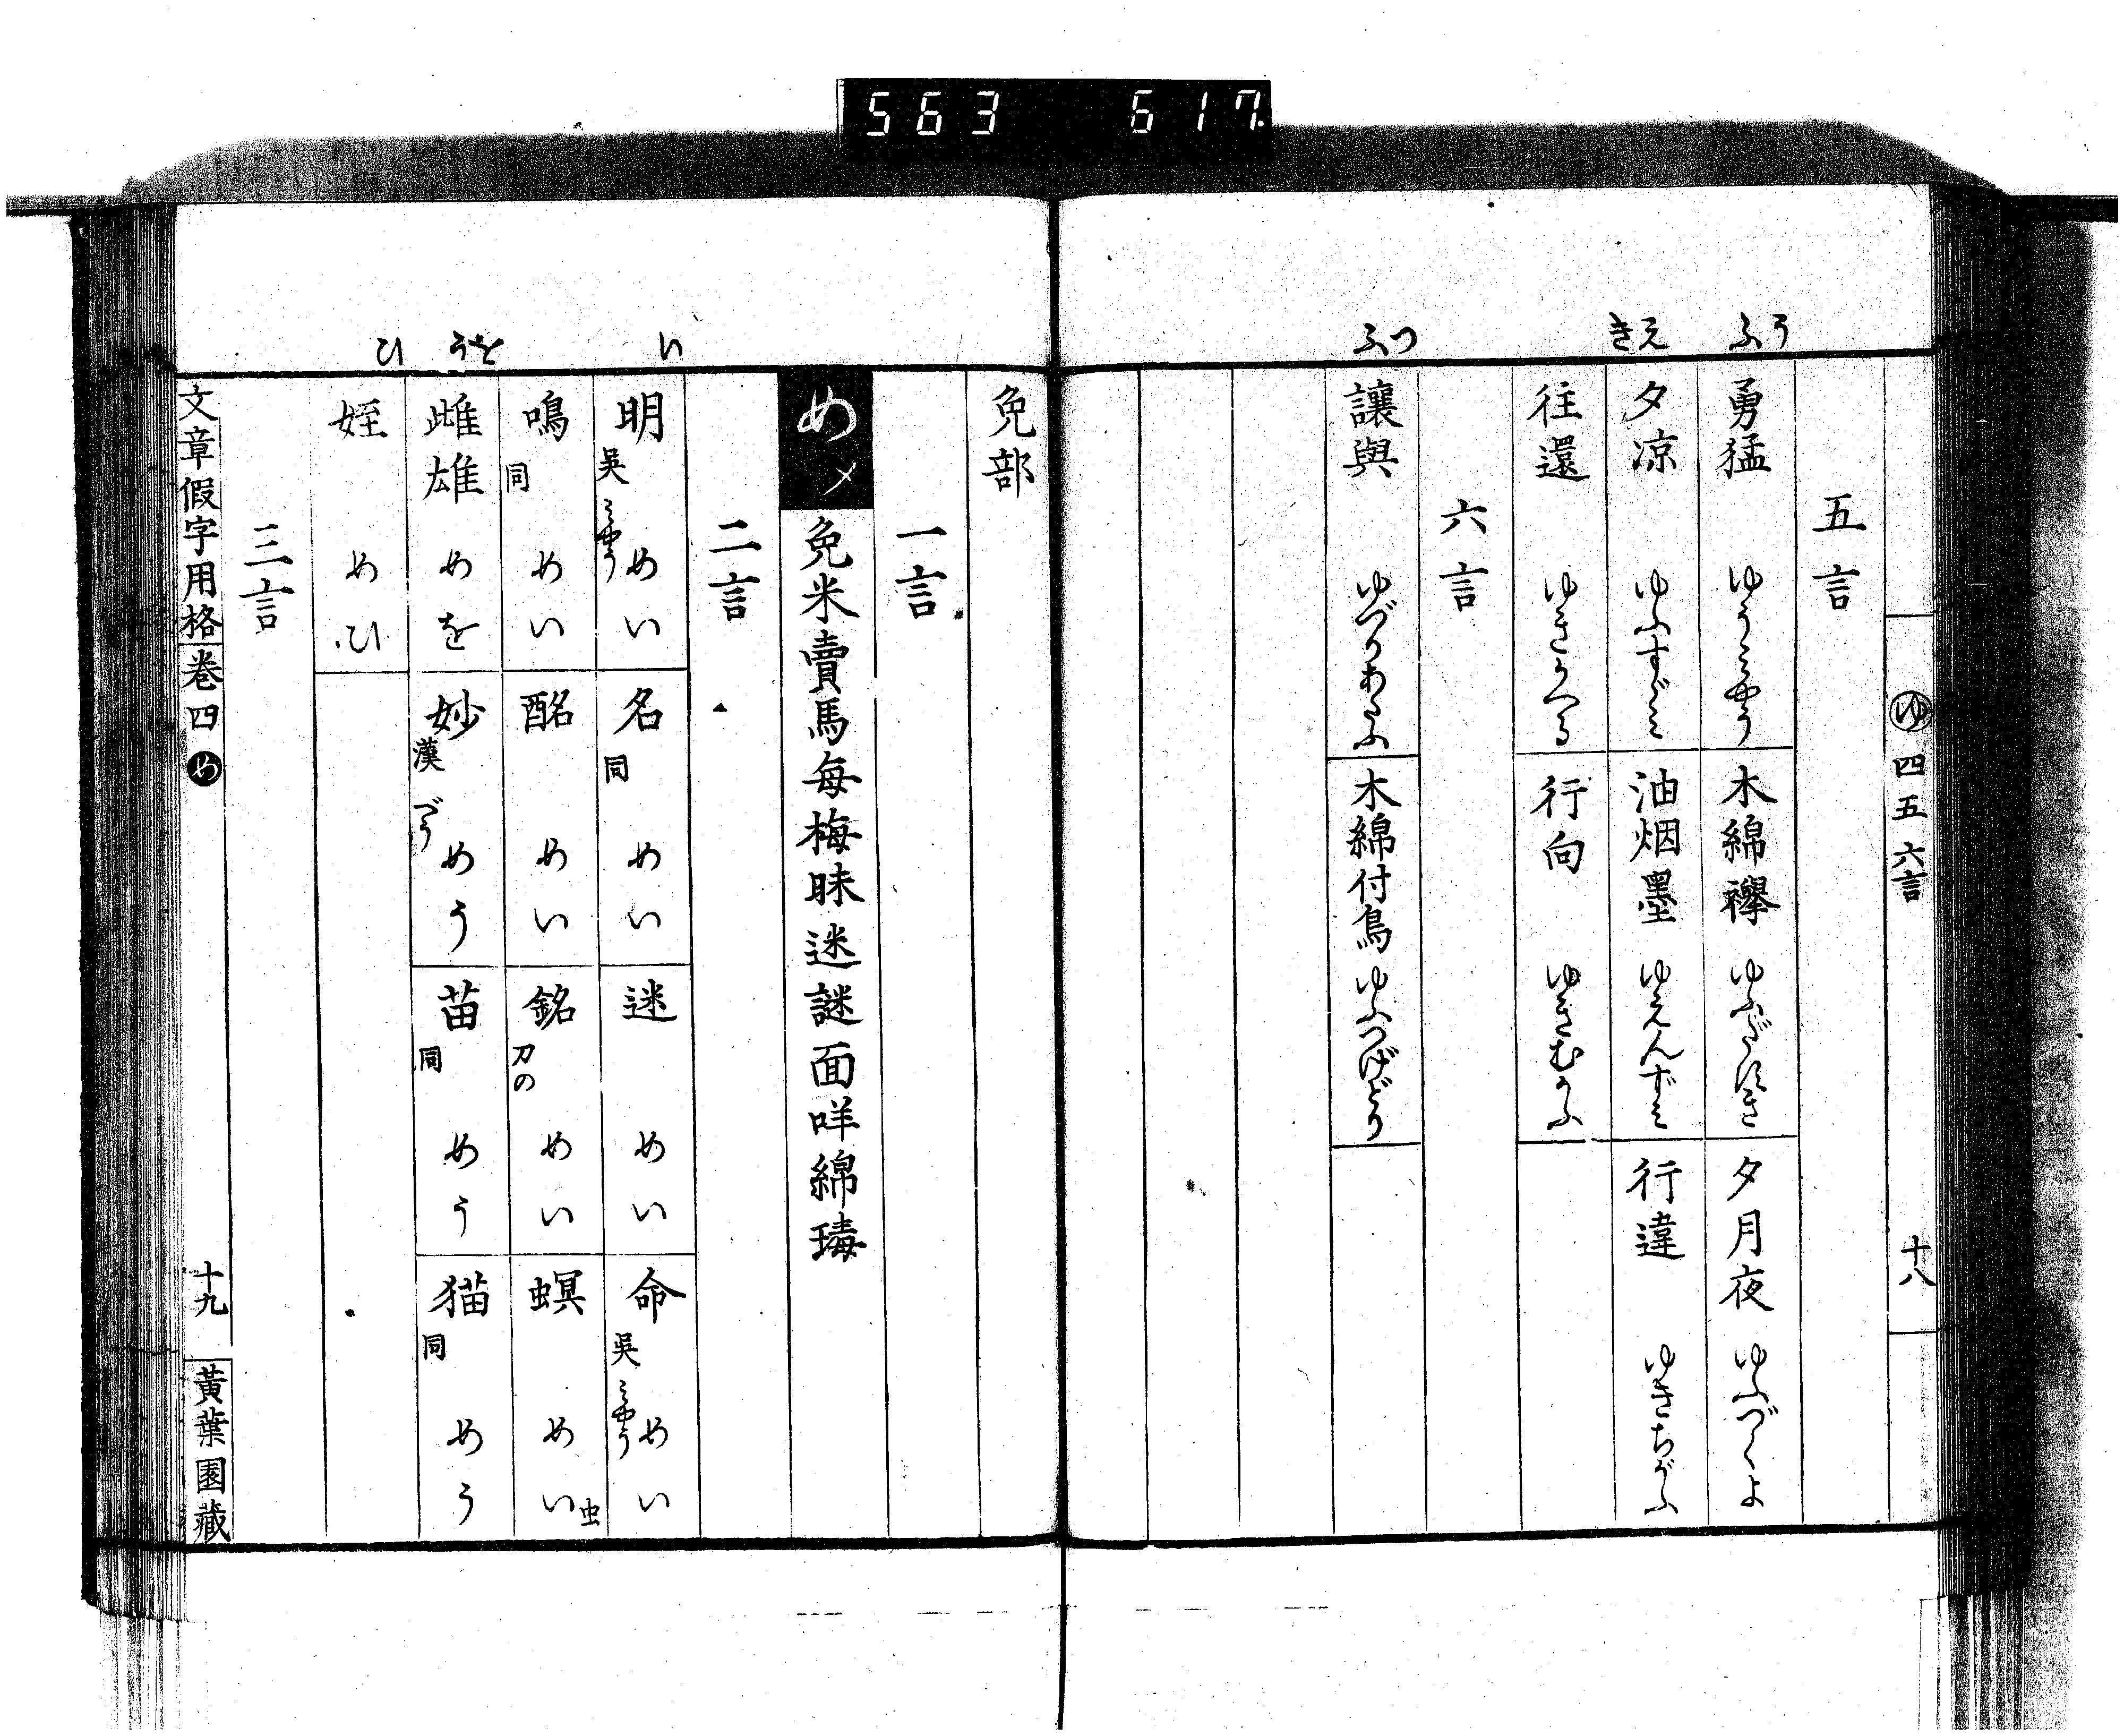 563 617
ゆ 四五六言 十八
ふう
きえ
ふつ
五言
勇猛 ゆうみやう 木綿襷 ゆふだすき 夕月夜 ゆふづくよ
夕凉 ゆふすゞみ 油烟墨 ゆえんずみ 行違 ゆきちがふ
往還 ゆきかへる 行向 ゆきむかふ
六言
讓與 ゆづりあたふ 木綿付鳥 ゆふつげどり
免部
一言
めメ 免米賣馬毎梅昧迷謎面咩綿
二言
い
うを
ひ
明 呉みやう めい 名 同 めい 迷 めい 命 呉みやう めい
鳴 同 めい 酩 めい 銘 刀の めい 螟 めい 虫
雌雄 めを 妙 漢 べう めう 苗 同 めう 猫 同 めう
姪 めひ
三言
文章假字用格 巻四 め 十九 黄葉園藏